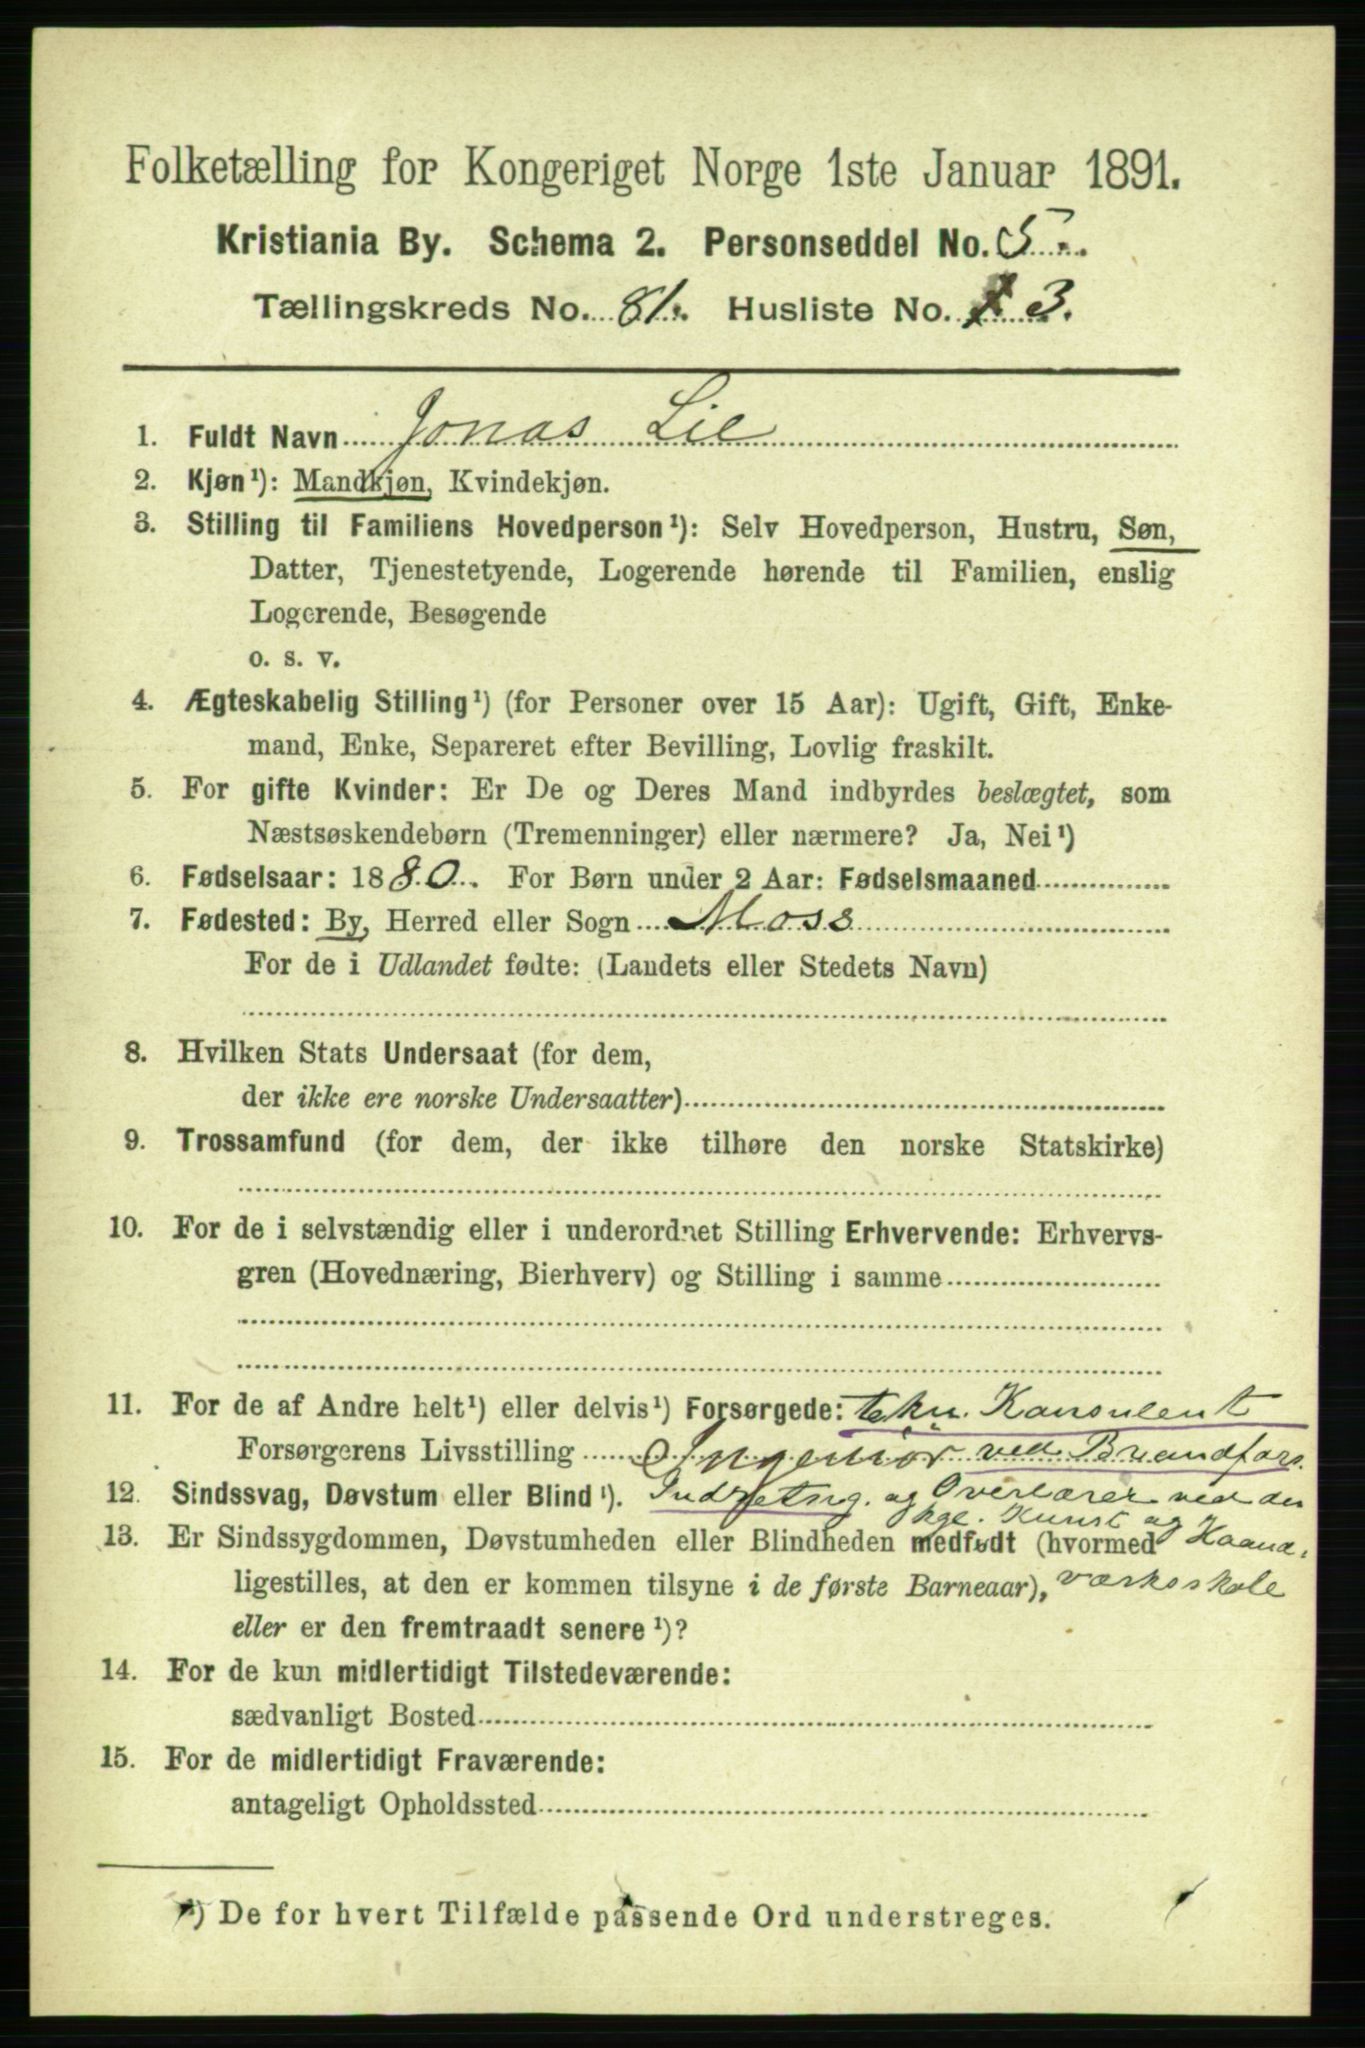 Folketælling for Kongeriget Norge 1ste Januar 1891.
Kristiania By. Schema 2. Personseddel No. 5.
Tællingskreds No. 81. Husliste No. 3.
1. Fuldt Navn Jonas Lie
2. Kjøn¹): Mandkjøn, Kvindekjøn.
3. Stilling til Familiens Hovedperson¹): Selv Hovedperson, Hustru, Søn,
Datter, Tjenestetyende, Logerende hørende til Familien, enslig
Logerende, Besøgende
o. s. v.
4. Ægteskabelig Stilling¹) (for Personer over 15 Aar): Ugift, Gift, Enke-
mand, Enke, Separeret efter Bevilling, Lovlig fraskilt.
5. For gifte Kvinder: Er De og Deres Mand indbyrdes beslægtet, som
Næstsøskendebørn (Tremenninger) eller nærmere? Ja, Nei¹)
6. Fødselsaar: 1880. For Børn under 2 Aar: Fødselsmaaned
7. Fødested: By, Herred eller Sogn Moss
For de i Udlandet fødte: (Landets eller Stedets Navn)
8. Hvilken Stats Undersaat (for dem,
der ikke ere norske Undersaatter)
9. Trossamfund (for dem, der ikke tilhøre den norske Statskirke)
10. For de i selvstændig eller i underordnet Stilling Erhvervende: Erhvervs-
gren (Hovednæring, Bierhverv) og Stilling i samme
11. For de af Andre helt¹) eller delvis¹) Forsørgede: tekn. Konsulent
Forsørgerens Livsstilling Ingeniør ved Brandfors.
12. Sindssvag, Døvstum eller Blind¹). Indretng. og Overlærer ved den
kgl. Kunst og
13. Er Sindssygdommen, Døvstumheden eller Blindheden medfødt (hvormed Haand-
ligestilles, at den er kommen tilsyne i de første Barneaar), værksskole
eller er den fremtraadt senere¹)?
14. For de kun midlertidigt Tilstedeværende:
sædvanligt Bosted
15. For de midlertidigt Fraværende:
antageligt Opholdssted
¹) De for hvert Tilfælde passende Ord understreges.